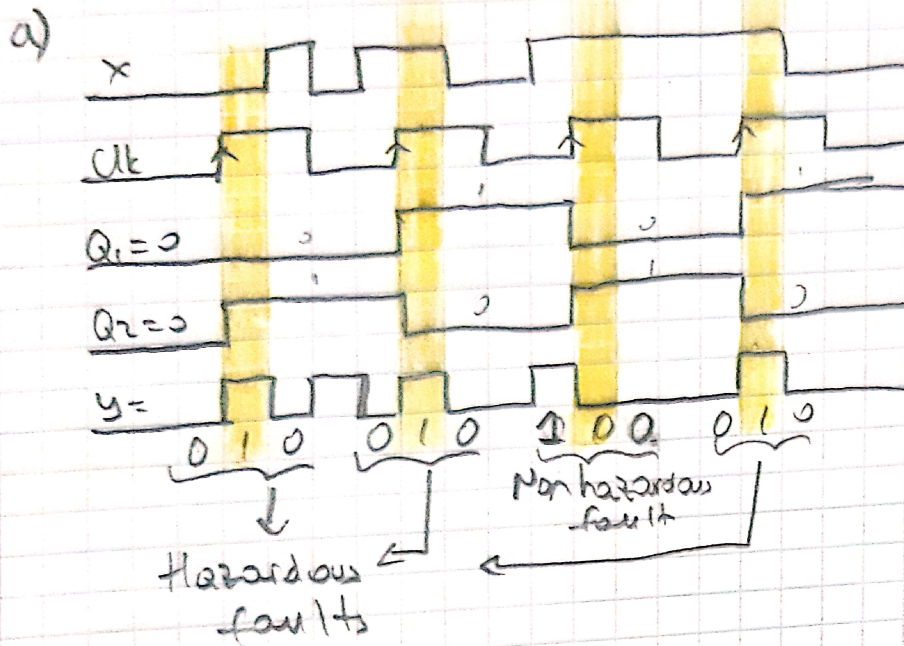 a)
x
Clk
1
Q1=0 0 0 1
1 1
Q2=0 0 0
y=
0 1 0 0 1 0 1 0 0 0 1 0
Non hazardous
fault
Hazardous
faults